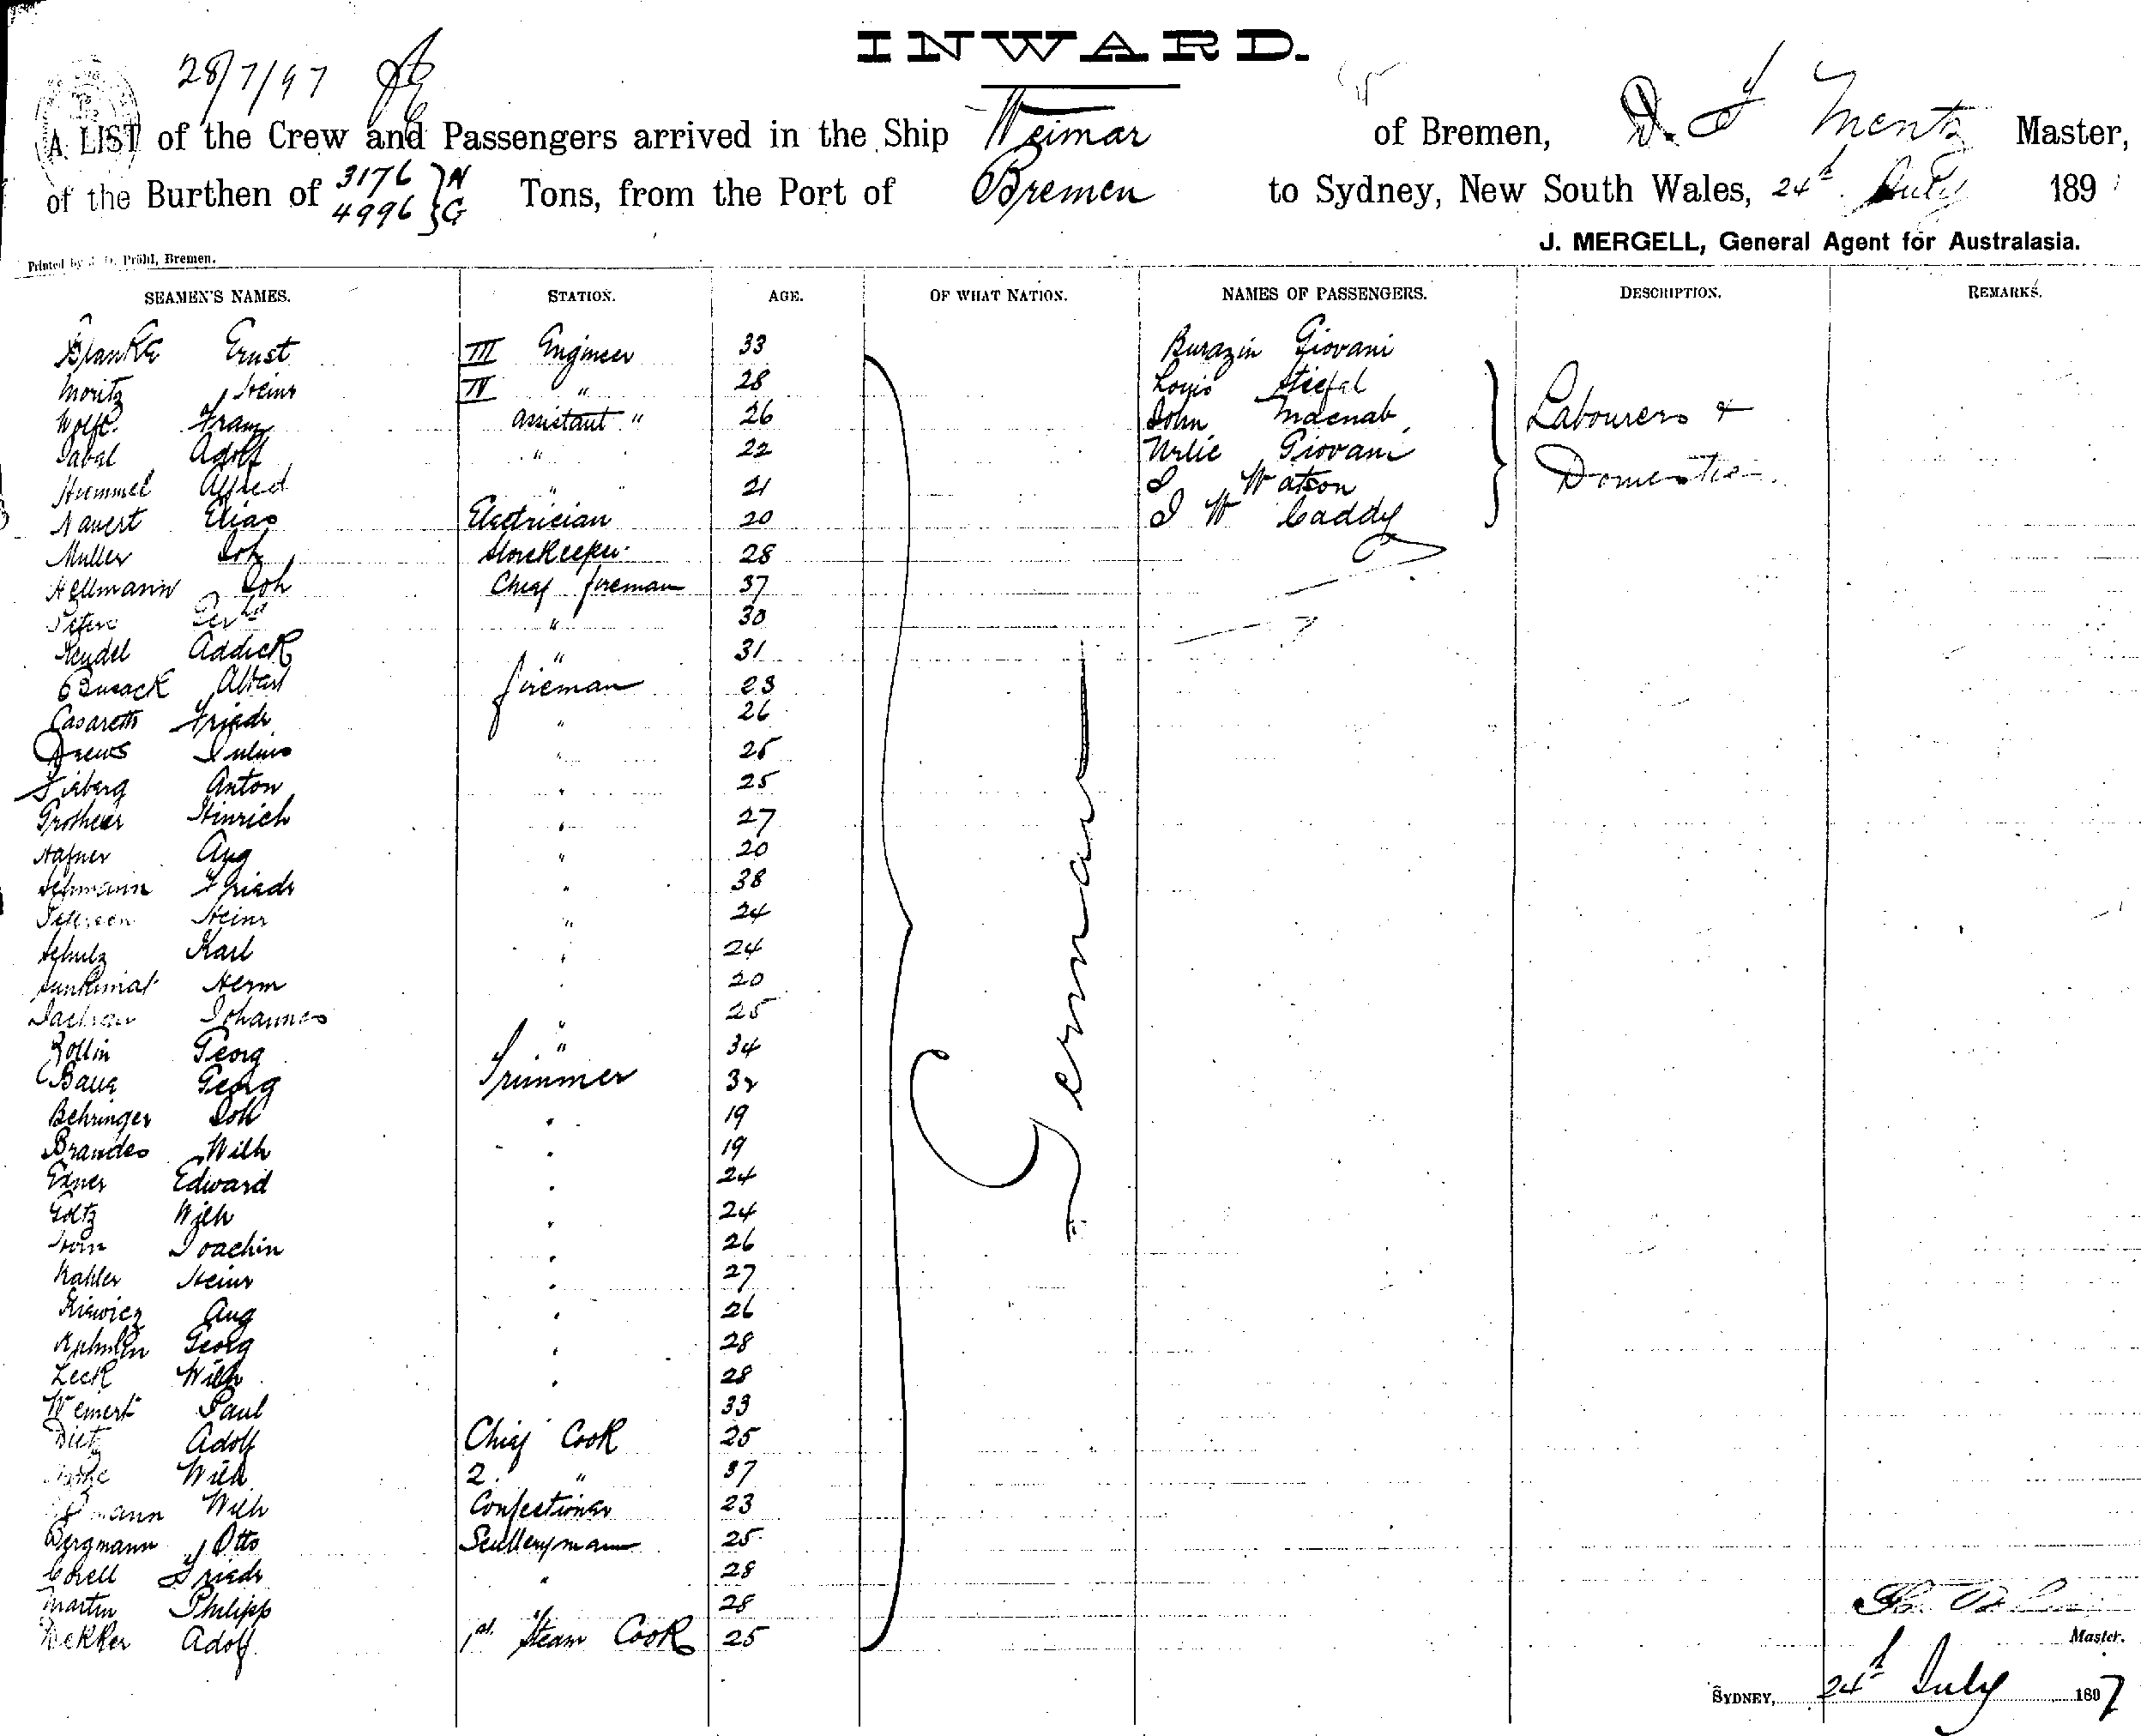 INWARD.
28/7/97
A LIST of the Crew and Passengers arrived in the Ship Weimar of Bremen, D. Mentz Master,
of the Burthen of 3176 } N 4996 } G Tons, from the Port of Bremen to Sydney, New South Wales, 24th July 189
J. MERGELL, General Agent for Australasia.
Printed by Pröhl, Bremen.
SEAMEN'S NAMES. STATION. AGE. OF WHAT NATION. NAMES OF PASSENGERS. DESCRIPTION. REMARKS.
Ernst III Engineer 33 Burazin Giovani
Moritz Heinr IV " 28 Louis Stiefal
Wolff Franz Assistant " 26 John Macnab Labourers &
Adolf " 22 Urlic Giovani Domestics
Hummel Alfred " " 21 Watson
Nauert Elias Electrician 20 J W Caddy
Muller Joh Storekeeper 28
Hellmann Joh Chief fireman 37
" 30
Addick " 31
Busack Albert fireman 23
Casaretto Friedr " 26
Drews Julius " 25
Fieberg Anton " 25
Grotheer Hinrich " 27
Hafner Aug " 20
Lehmann Friedr " 38
Heinr " 24
Schulz Karl " 24
Herm " 20
Johannes " 25
Zollin Georg " 34
Georg Trimmer 32
Behringer Joh " 19
Brandes Wilh " 19
Exner Edward " 24
Goltz Wilh " 24
Horn Joachin " 26
Kahler Heinr " 27
Kiewicz Aug " 26
Georg " 28
Leck Wilh " 28
Weinert Paul 33
Dietz Adolf Chief Cook 25
Wilh 2. " 37
Wilh Confectioner 23
Bergmann Otto Scullerymann 25
Corell Friedr " 28
Martin Philipp 28
Dekker Adolf 1st Steam Cook 25
German
Master.
SYDNEY, 24th July 1897